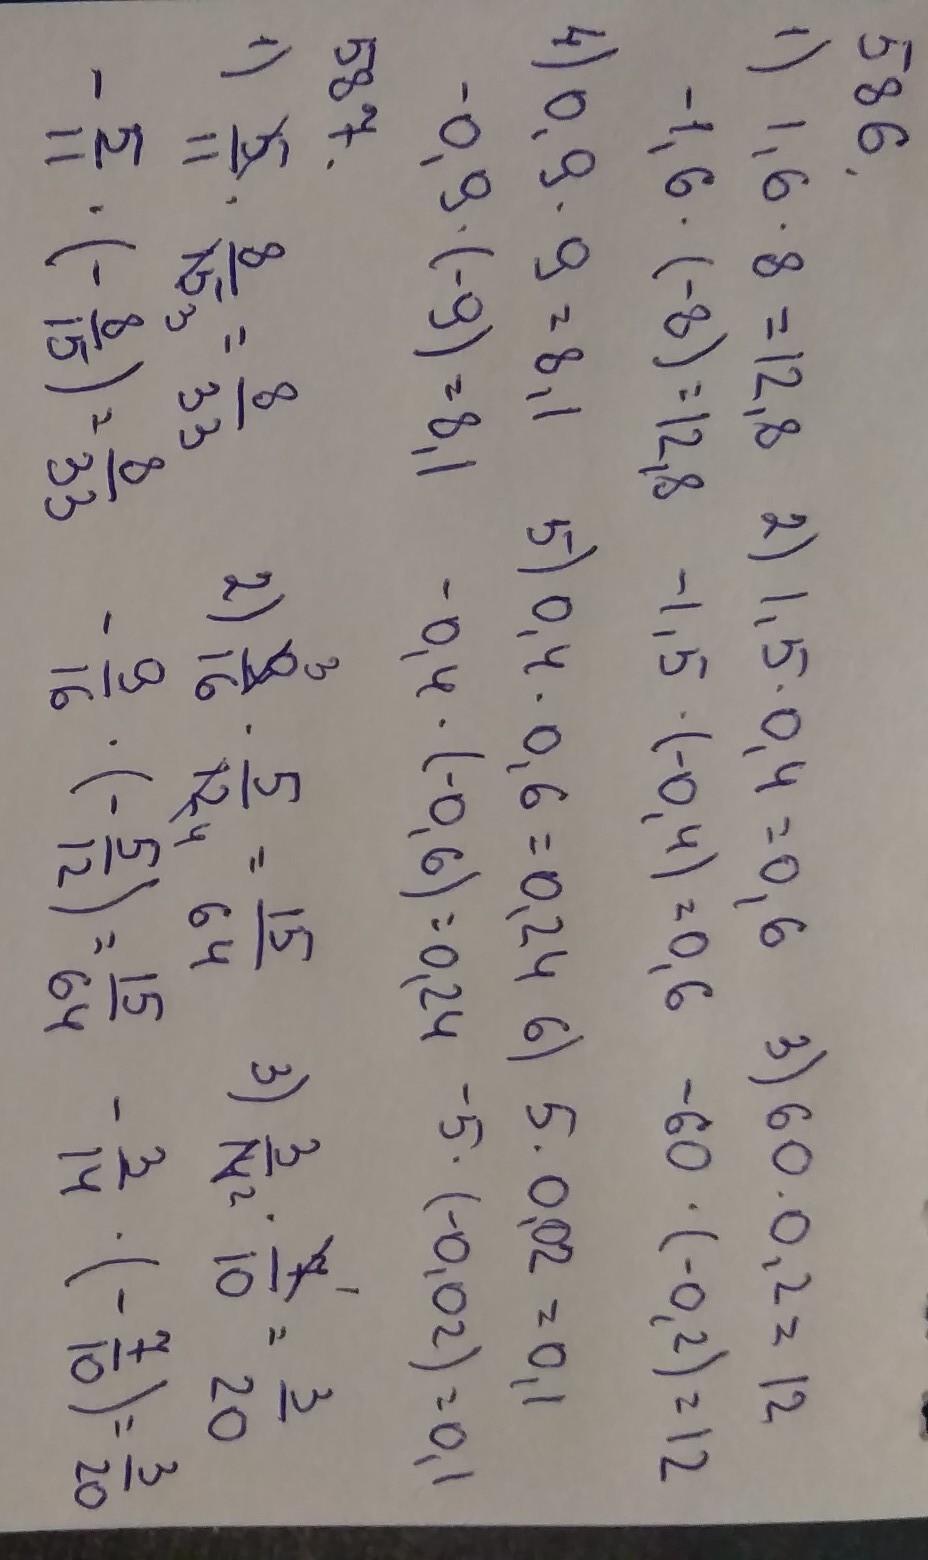 586.
1) 1,6 · 8 = 12,8 2) 1,5 · 0,4 = 0,6 3) 60 · 0,2 = 12
-1,6 · (-8) = 12,8 -1,5 · (-0,4) = 0,6 -60 · (-0,2) = 12
4) 0,9 · 9 = 8,1 5) 0,4 · 0,6 = 0,24 6) 5 · 0,02 = 0,1
-0,9 · (-9) = 8,1 -0,4 · (-0,6) = 0,24 -5 · (-0,02) = 0,1
587.
1) 5/11 · 8/15 3 = 8/33 2) 9 3/16 · 5/12 4 = 15/64 3) 3/14 2 · 7 1/10 = 3/20
-5/11 · (-8/15) = 8/33 -9/16 · (-5/12) = 15/64 -3/14 · (-7/10) = 3/20